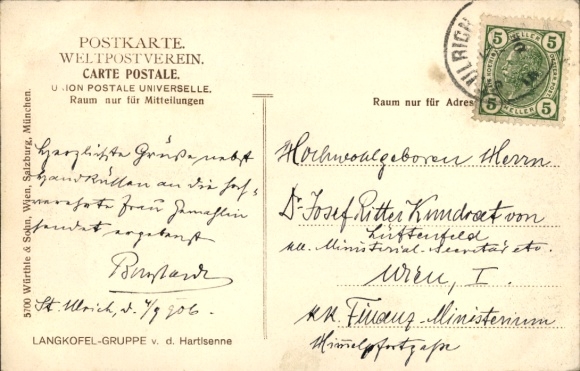 POSTKARTE.
WELTPOSTVEREIN.
CARTE POSTALE.
UNION POSTALE UNIVERSELLE.
Raum nur für Mitteilungen
Herzlichste Grüße nebst
Handküssen an die hoch-
verehrte Frau Gemahlin
sendet ergebenst
St. Ulrich, d. 7/9 906.
LANGKOFEL-GRUPPE v. d. Hartlsenne
5700 Würthle & Sohn, Wien, Salzburg, München.
ULRICH
5 HELLER 5
5 5
Raum nur für Adres
Hochwohlgeboren Herrn
Dr Josef Ritter Kundrat von
Lüttenfeld
kk. Ministerial-Secretär etc.
Wien, I.
kk. Finanz-Ministerium
Himmelpfortgaße